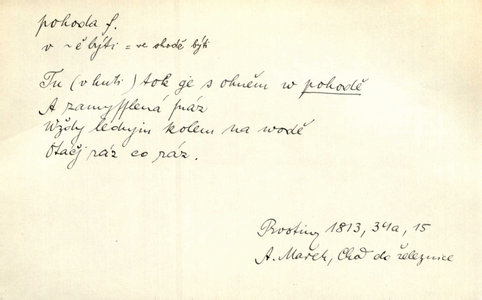 pohoda f.
v ~ě býti = ve shodě býti
Tu (v huti) tok ge s ohněm w pohodě
A zamyšlená
Wždy lednjm kolem na wodě
Otáčj ráz co ráz.
Prvotiny 1813, 34a, 15
A. Marek, Choď do železnice